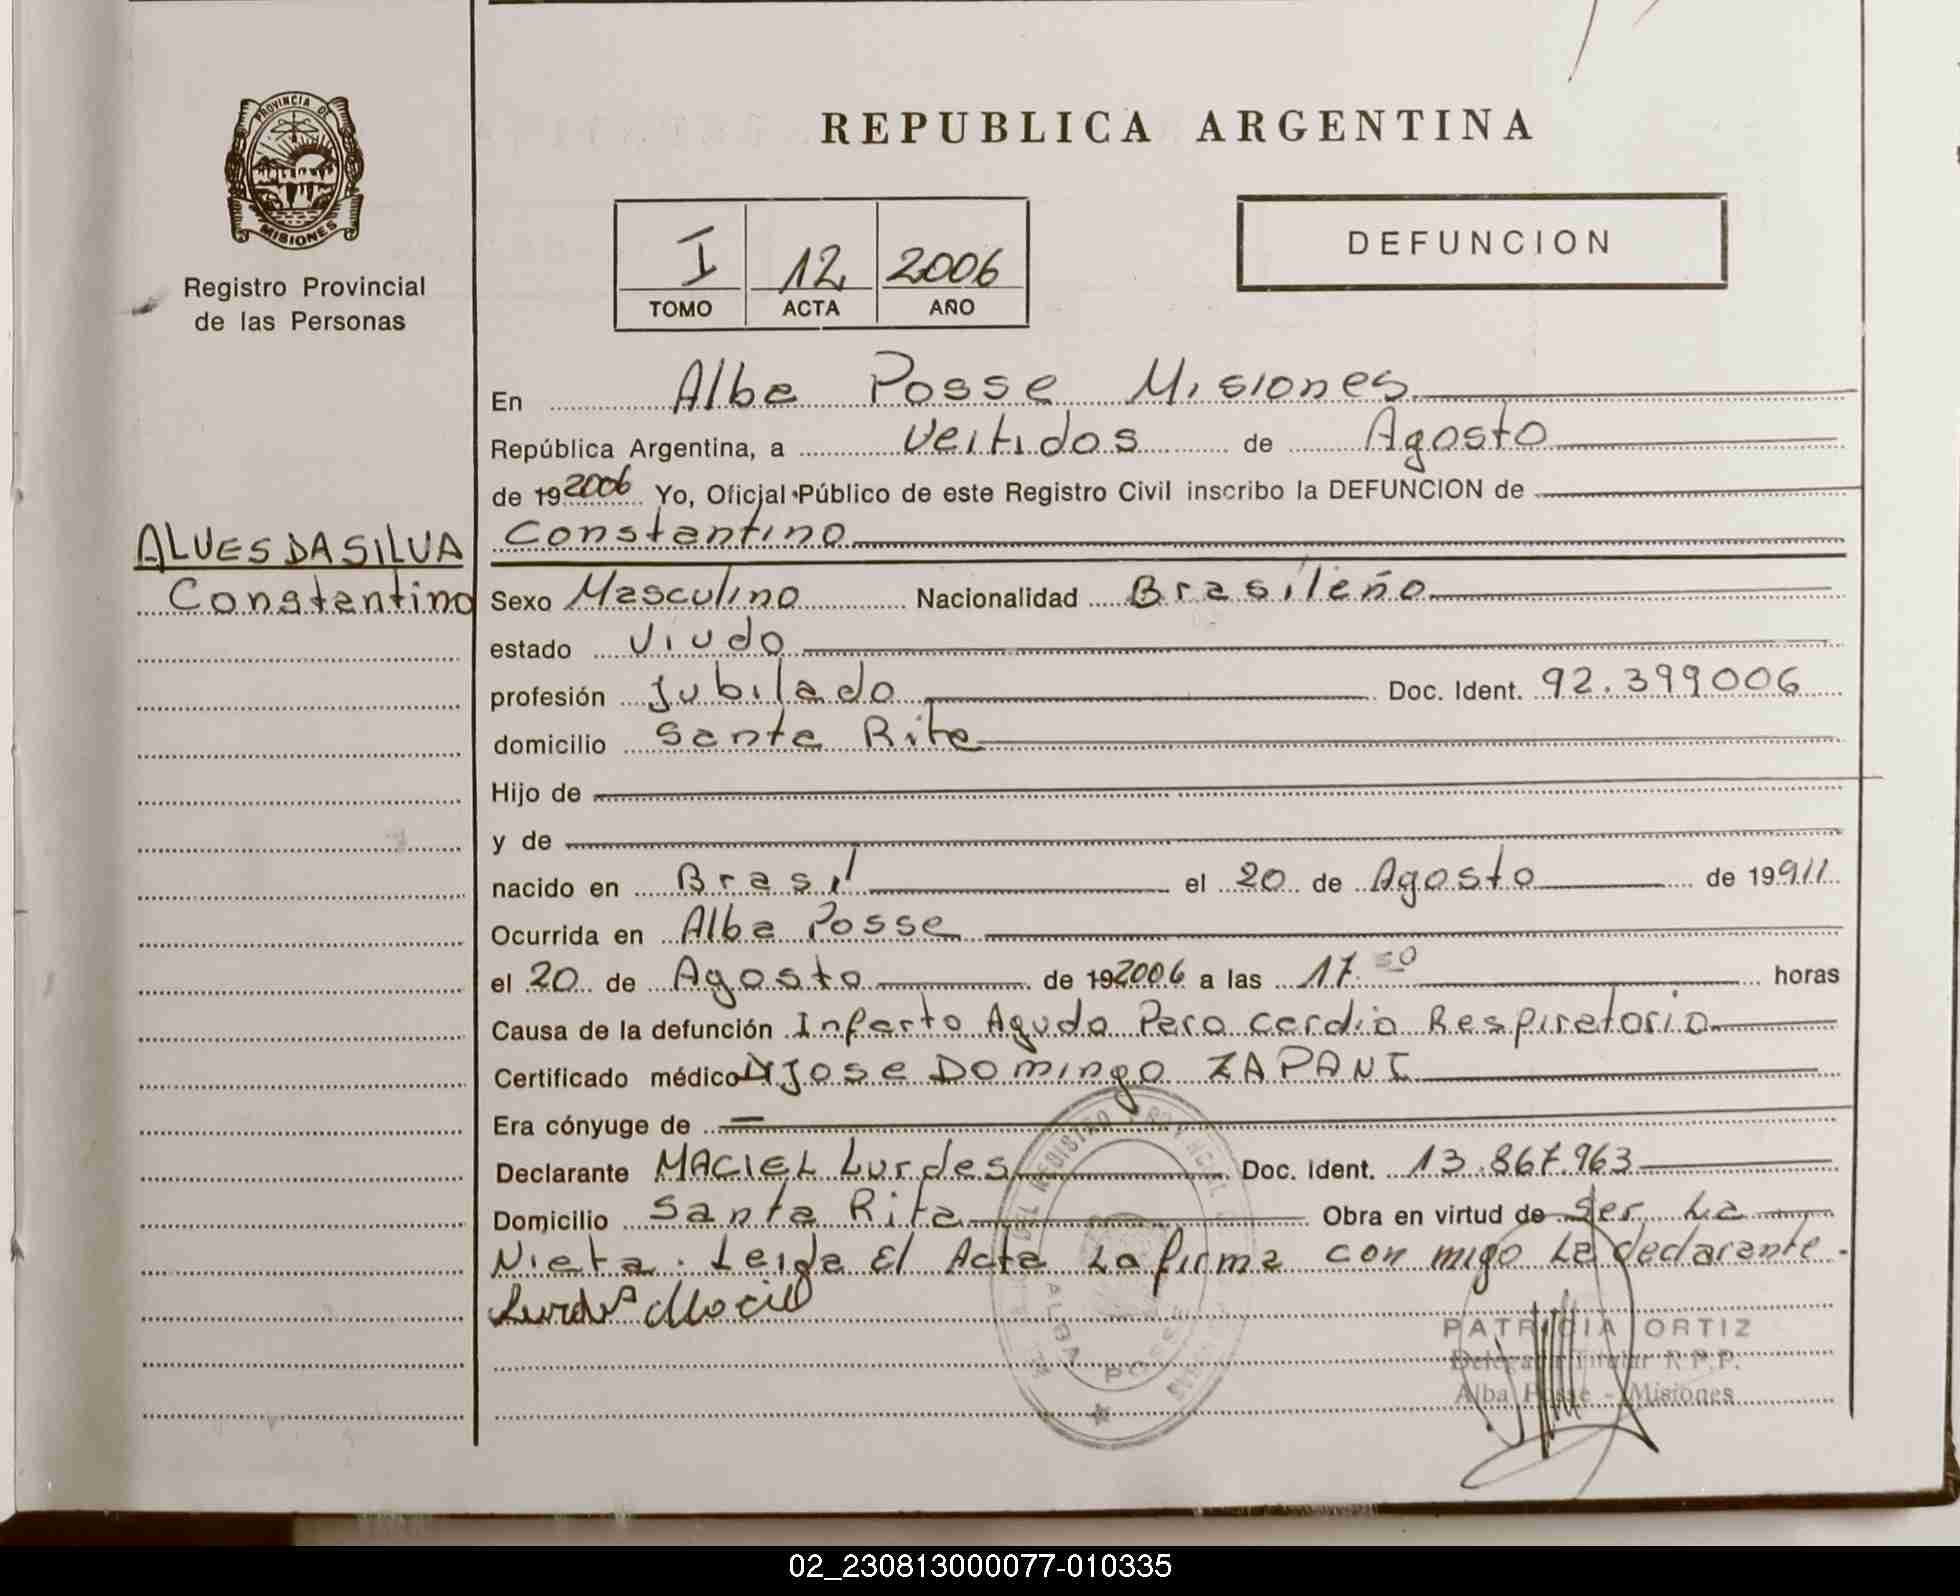 PROVINCIA DE
MISIONES
Registro Provincial
de las Personas
REPUBLICA ARGENTINA
I 12 2006
TOMO ACTA AÑO
DEFUNCION
En Alba Posse Misiones
República Argentina, a Veitidos de Agosto
de 19 2006 Yo, Oficial Público de este Registro Civil inscribo la DEFUNCION de
ALVES DA SILVA
Constantino
Constantino
Sexo Masculino Nacionalidad Brasileño
estado Viudo
profesión Jubilado Doc. Ident. 92.399006
domicilio Santa Rita
Hijo de
y de
nacido en Brasil el 20 de Agosto de 19 911
Ocurrida en Alba Posse
el 20 de Agosto de 19 2006 a las 17.30 horas
Causa de la defunción Infarto Agudo Paro cardio Respiratorio
Certificado médico Dr Jose Domingo ZAPANI
Era cónyuge de —
Declarante MACIEL Lurdes Doc. Ident. 13.867.963
Domicilio Santa Rita Obra en virtud de Ser La
Nieta. Leida El Acta La firma con migo La declarante.
Lurdes Maciel
ALBA POSSE
PATRICIA ORTIZ
Delegada Titular R.P.P.
Alba Posse - Misiones
02_230813000077-010335